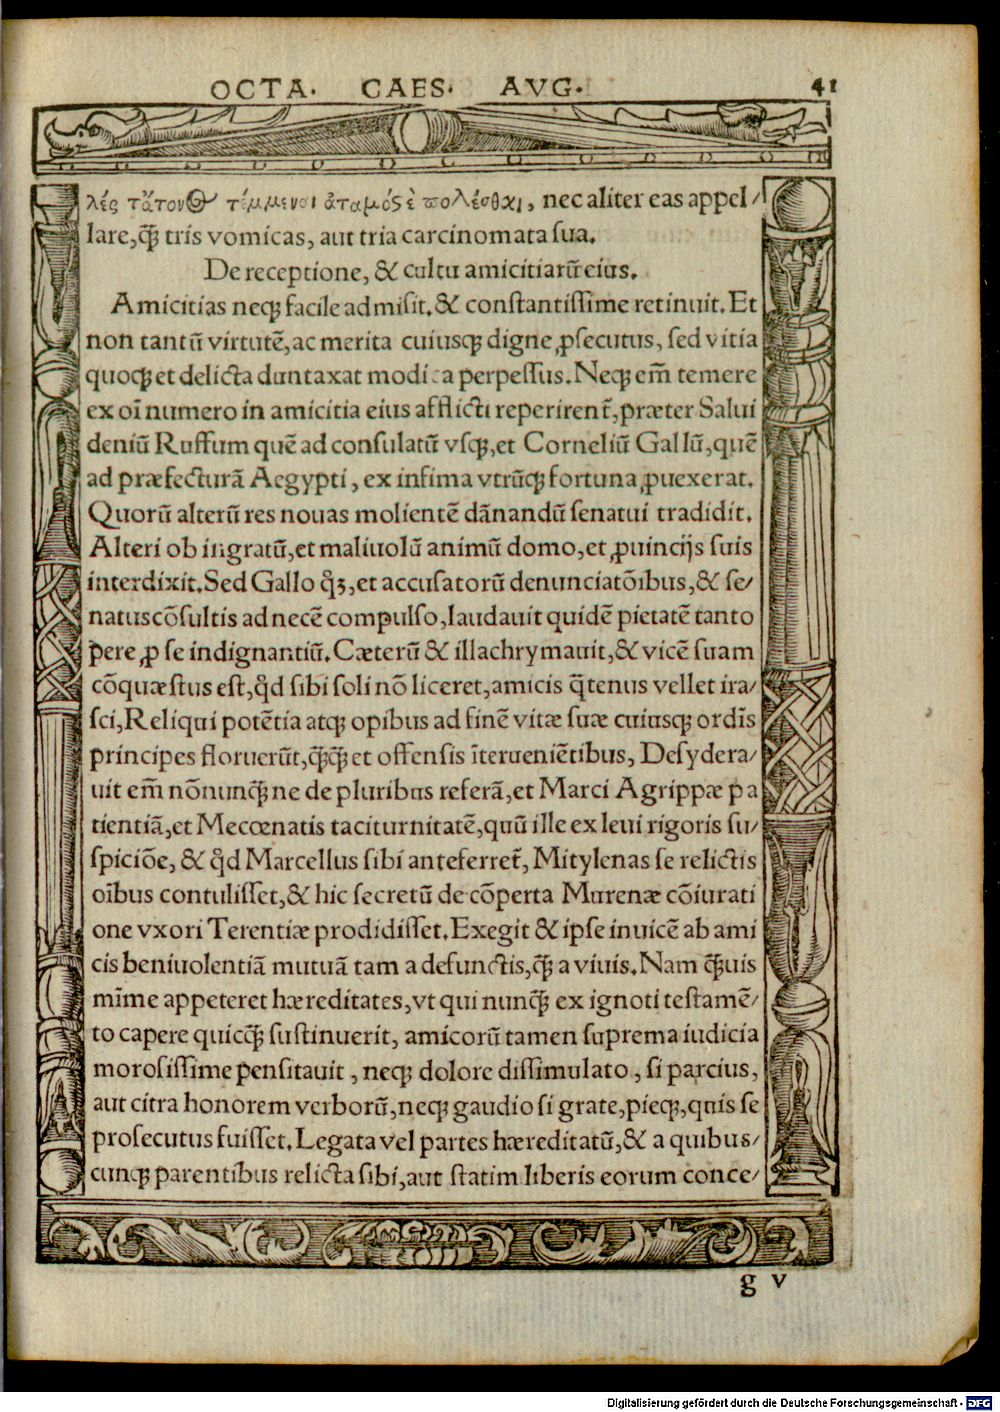 OCTA. CAES. AVG. 41
nec aliter eas appel/
lare,q̃ꝫ tris vomicas, aut tria carcinomata sua.
De receptione, & cultu amicitiarũ eius.
Amicitias neqꝫ facile admisit.& constantissime retinuit. Et
non tantũ virtutẽ,ac merita cuiusqꝫ digne ꝓsecutus, sed vitia
quoqꝫ et delicta duntaxat modica perpessus. Neqꝫ em̃ temere
ex oĩ numero in amicitia eius afflicti reperirent᷑,præter Salui
deniũ Ruffum quẽ ad consulatũ vsqꝫ,et Corneliũ Gallũ,quẽ
ad præfecturã Aegypti, ex infima vtrũqꝫ fortuna ꝓuexerat.
Quorũ alterũ res nouas molientẽ dãnandũ senatui tradidit.
Alteri ob ingratũ,et maliuolũ animũ domo,et ꝓuincijs suis
interdixit. Sed Gallo q̃ꝫ,et accusatorũ denunciatõibus,& se/
natuscõsultis ad necẽ compulso,laudauit quidẽ pietatẽ tanto
pere ꝓ se indignantiũ. Cæterũ & illachrymauit,& vicẽ suam
cõquæstus est,q̃d sibi soli nõ liceret,amicis q̃tenus vellet ira/
sci,Reliqui potẽtia atqꝫ opibus ad finẽ vitæ suæ cuiusqꝫ ordĩs
principes floruerũt,q̃ꝫq̃ꝫ et offensis ĩterueniẽtibus, Desydera/
uit em̃ nõnunq̃ꝫ ne de pluribus referã,et Marci Agrippæ pa
tientiã,et Mecœnatis taciturnitatẽ,quũ ille ex leui rigoris su/
spiciõe, & q̃d Marcellus sibi anteferret᷑, Mitylenas se relictis
oĩbus contulisset,& hic secretũ de cõperta Murenæ cõiurati
one vxori Terentiæ prodidisset. Exegit & ipse inuicẽ ab ami
cis beniuolentiã mutuã tam a defunctis,q̃ꝫ a viuis. Nam q̃ꝫuis
mĩme appeteret hæreditates,vt qui nunq̃ꝫ ex ignoti testamẽ/
to capere quicq̃ꝫ sustinuerit, amicorũ tamen suprema iudicia
morosissime pensitauit, neqꝫ dolore dissimulato, si parcius,
aut citra honorem verborũ,neqꝫ gaudio si grate,pieqꝫ,quis se
prosecutus fuisset. Legata vel partes hæreditatũ,& a quibus/
cunqꝫ parentibus relicta sibi,aut statim liberis eorum conce/
g v
Digitalisierung gefördert durch die Deutsche Forschungsgemeinschaft - DFG